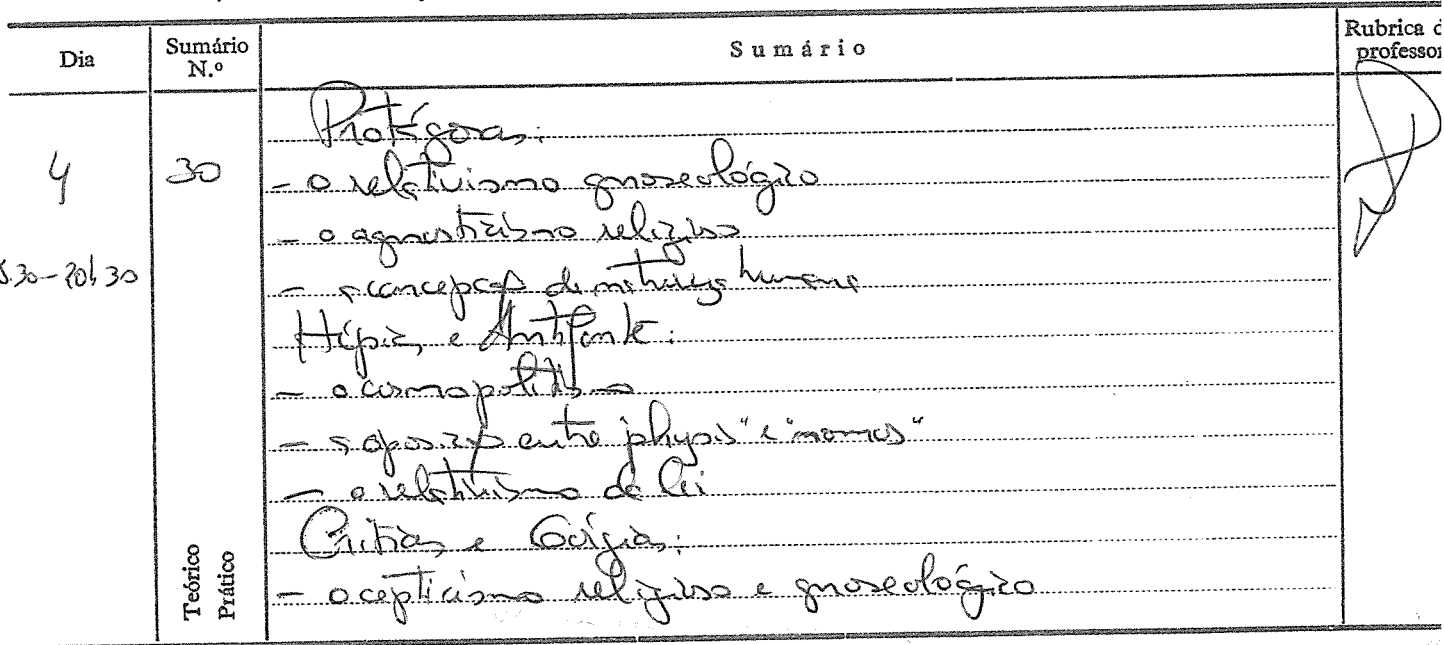 Dia Sumário N.º Sumário Rubrica d professor
Protágoras:
4 30 - o relativismo gnoseológico
- o agnosticismo religioso
.30-20h30 - a concepção da natureza humana
Hípias e Antifonte:
- o cosmopolitismo
- a oposição entre "physis" e "nomos"
- o relativismo da lei
Crítias e Górgias:
- o cepticismo religioso e gnoseológico
Teórico
Prático